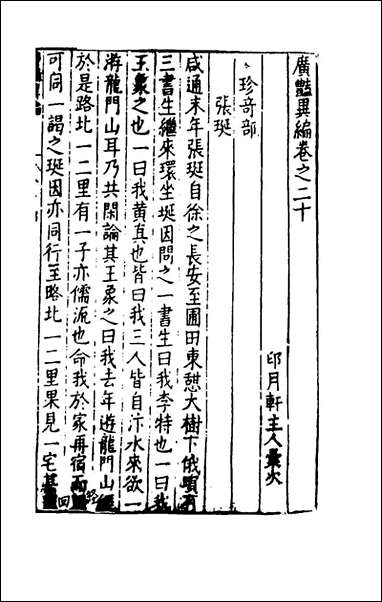 廣豔異編卷之二十
印月軒主人彙次
珍奇部
張珽
咸通末年張珽自徐之長安至圃田東憇大樹下俄頃有
三書生繼來環坐珽因問之一書生曰我李特也一曰我
王象之也一曰我黃真也皆曰我三人皆自汴水來欲一
游龍門山耳乃共閑論其王象之曰我去年遊龍門山經
於是路北一二里有一子亦儒流也命我於家再宿而
可同一謁之珽因亦同行至路北一二里果見一宅甚